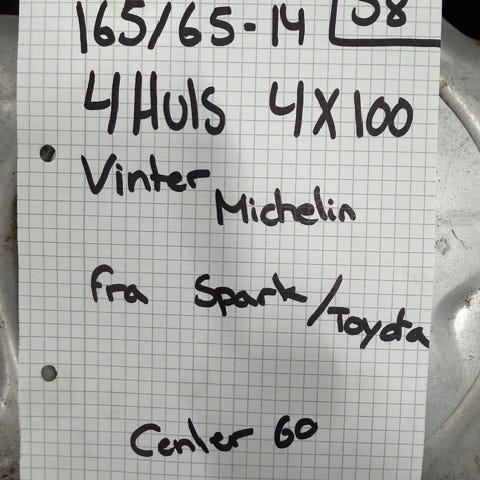 165/65-14
4 Huls 4x100
Vinter Michelin
fra Spark/Toyota
Center 60